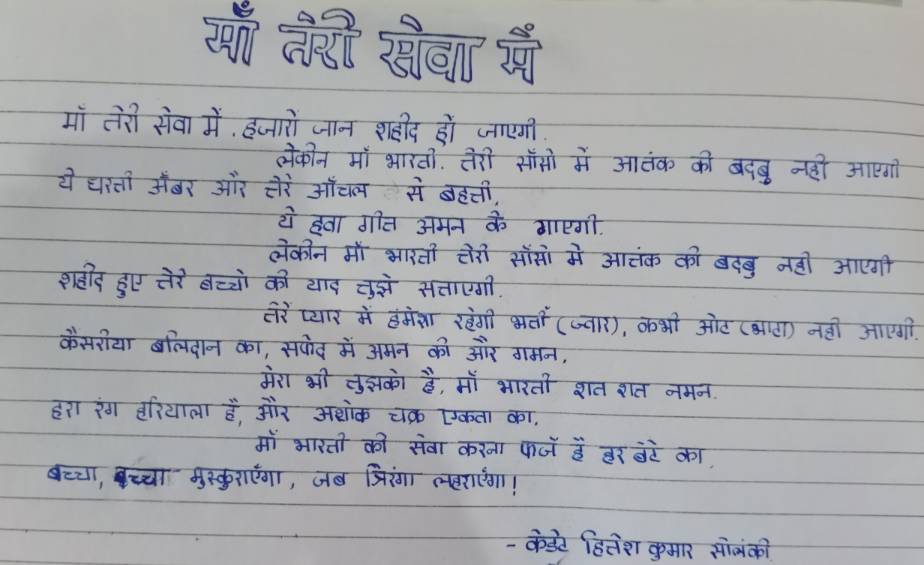 माँ तेरी सेवा में
माँ तेरी सेवा में, हजारों जान शहीद हो जाएगी.
लेकीन माँ भारती. तेरी साँसो में आतंक की बदबु नही आएगी
ये धरती अँबर और तेरे आँचल से बहती,
ये हवा गीत अमन के गाएगी.
लेकीन माँ भारती तेरी साँसो में आतंक की बदबु नही आएगी
शहीद हुए तेरे बच्चो की याद तुझे सताएगी.
तेरे प्यार में हंमेशा रहेगी भर्ती (ज्वार), कभी ओट (भाटा) नही आएगी.
केसरीया बलिदान का, सफेद में अमन की और गमन,
मेरा भी तुझको है, माँ भारती शत शत नमन.
हरा रंग हरियाला है, और अशोक चक्र एकता का,
माँ भारती की सेवा करना फर्ज है हर बेटे का,
बच्चा, बच्चा मुस्कुराएँगा, जब त्रिरंगा लहराएँगा!
- केडेट हितेश कुमार सोलंकी